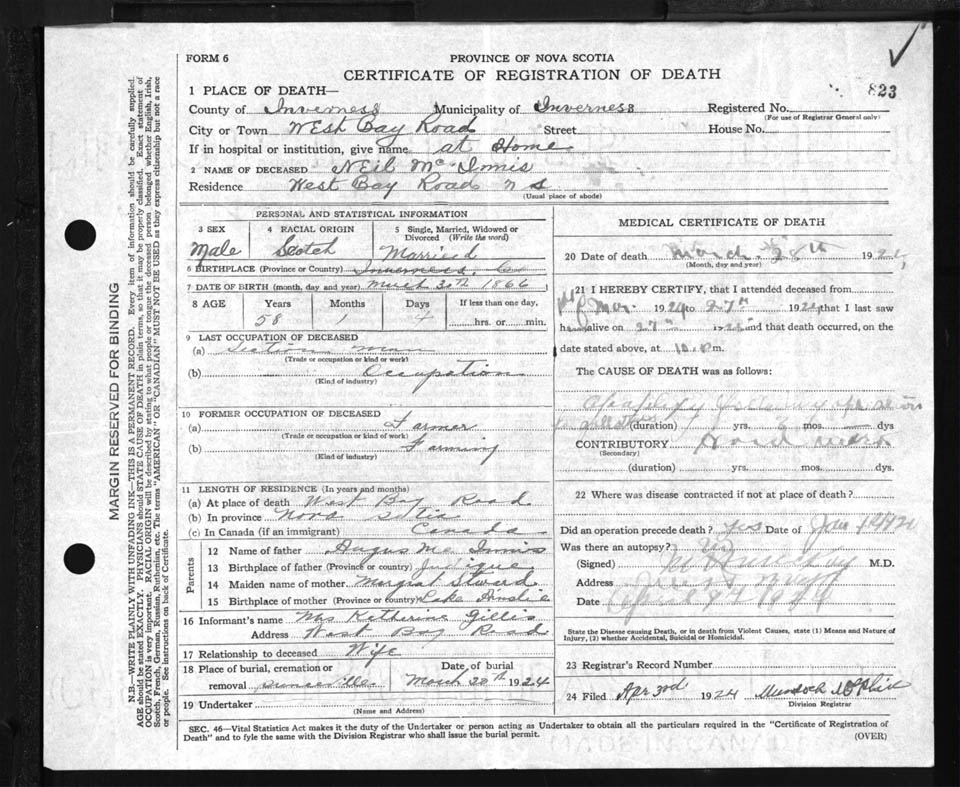 FORM 6
PROVINCE OF NOVA SCOTIA
CERTIFICATE OF REGISTRATION OF DEATH
823
1 PLACE OF DEATH—
County of Inverness Municipality of Inverness Registered No.
(For use of Registrar General only)
City or Town West Bay Road Street House No.
If in hospital or institution, give name at Home
2 NAME OF DECEASED Neil Mc Innis
Residence West Bay Road N S
(Usual place of abode)
MARGIN RESERVED FOR BINDING
N.B.—WRITE PLAINLY WITH UNFADING INK—THIS IS A PERMANENT RECORD. Every item of information should be carefully supplied.
AGE should be stated EXACTLY. PHYSICIANS should STATE CAUSE OF DEATH in plain terms, so that it may be properly classified. Exact statement of
OCCUPATION is very important. RACIAL ORIGIN will be described by stating to what people or tongue the deceased person belonged whether English, Irish,
Scotch, French, German, Russian, Ruthenian, etc. The terms "AMERICAN" OR "CANADIAN" MUST NOT BE USED as they express citizenship but not a race
or people. See instructions on back of Certificate.
PERSONAL AND STATISTICAL INFORMATION
3 SEX 4 RACIAL ORIGIN 5 Single, Married, Widowed or
Divorced (Write the word)
Male Scotch Married
6 BIRTHPLACE (Province or Country) Inverness Co
7 DATE OF BIRTH (month, day and year) March 30th 1866
8 AGE Years Months Days If less than one day,
58 1 4 hrs. or min.
9 LAST OCCUPATION OF DECEASED
(a) Section man
(Trade or occupation or kind or work)
(b) Occupation
(Kind of industry)
10 FORMER OCCUPATION OF DECEASED
(a) Farmer
(Trade or occupation or kind of work)
(b) Farming
(Kind of industry)
11 LENGTH OF RESIDENCE (In years and months)
(a) At place of death West Bay Road
(b) In province Nova Scotia
(c) In Canada (if an immigrant) Canada
Parents
12 Name of father Angus Mc Innis
13 Birthplace of father (Province or country) Judique
14 Maiden name of mother Margrat Steward
15 Birthplace of mother (Province or country) Lake Ainslie
16 Informant's name Mrs Katherine Gillis
Address West Bay Road
17 Relationship to deceased Wife
18 Place of burial, cremation or Date of burial
removal March 1924
19 Undertaker
(Name and Address)
MEDICAL CERTIFICATE OF DEATH
20 Date of death March 28th 192
(Month, day and year)
21 I HEREBY CERTIFY, that I attended deceased from
Mar. 1924 to 27th 1924 that I last saw
h alive on 27th and that death occurred, on the
date stated above, at 10 p m.
The CAUSE OF DEATH was as follows:
(duration) yrs. mos. dys
CONTRIBUTORY Hard work
(Secondary)
(duration) yrs. mos. dys.
22 Where was disease contracted if not at place of death?
Did an operation precede death? yes Date of Jan
Was there an autopsy?
(Signed) M.D.
Address
Date April
State the Disease causing Death, or in death from Violent Causes, state (1) Means and Nature of
Injury, (2) whether Accidental, Suicidal or Homicidal.
23 Registrar's Record Number
24 Filed Apr 3rd 1924 Murdoch
Division Registrar
SEC. 46—Vital Statistics Act makes it the duty of the Undertaker or person acting as Undertaker to obtain all the particulars required in the "Certificate of Registration of
Death" and to fyle the same with the Division Registrar who shall issue the burial permit.
(OVER)